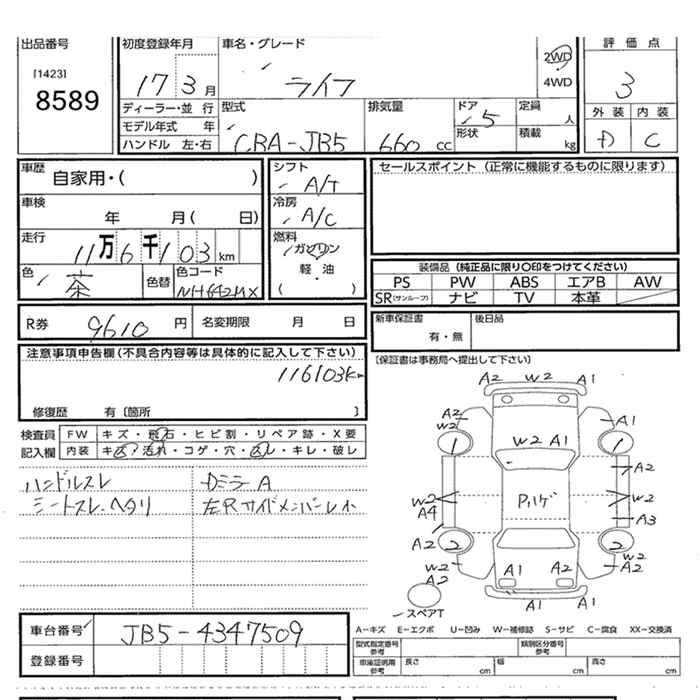 出品番号 初度登録年月 車名・グレード 評価点
[1423]
8589
17 3月 ライフ 2WD 4WD 3
ディーラー・並行 型式 排気量 ドア 定員 外装 内装
モデル年式 年 5 人
ハンドル 左・右 CBA-JB5 660cc 形状 積載 kg D C
車歴 シフト セールスポイント(正常に機能するものに限ります)
自家用・( ) A/T
車検 冷房
年 月( 日) A/C
走行 燃料
11万6千103km ガソリン
装備品(純正品に限り〇印をつけてください)
色 色替 色コード 軽・油
茶 NH642MX ( )
PS PW ABS エアB AW
SR(サンルーフ) ナビ TV 本革
R券 9610円 名変期限 月 日 新車保証書 後日品
有・無
注意事項申告欄(不具合内容等は具体的に記入して下さい) (保証書は事務局へ提出して下さい)
116103km
修復歴 有〔箇所 〕
検査員 FW キズ・飛石・ヒビ割・リペア跡・X要
記入欄 内装 キズ・汚れ・コゲ・穴・スレ・キレ・破レ
ハンドルスレ Dミラー A
シートスレ、ヘタリ 左Rサイドメンバーレ小
A2 W2 A1
A2 A1
W2
1 1
W2 A1
A2
W2 W2
A4 A3
A2
2 2
W2 W2
A2 A2
A1 A2
A1 A1
スペアT
車台番号 JB5-4347509
登録番号
A-キズ E-エクボ U-凹み W-補修跡 S-サビ C-腐食 XX-交換済
型式指定番号 参考 類別区分番号 参考
車庫証明用 参考 長さ cm 幅 cm 高さ cm